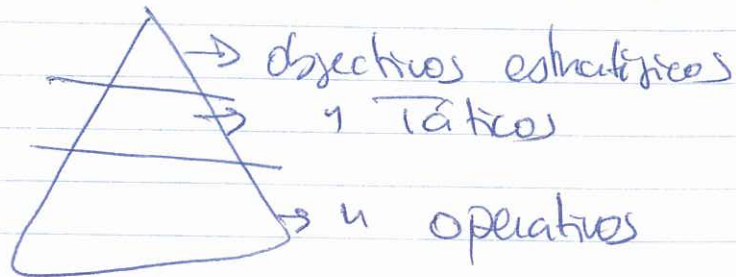 → objectivos estratégicos
→ " Táticos
→ " operativos